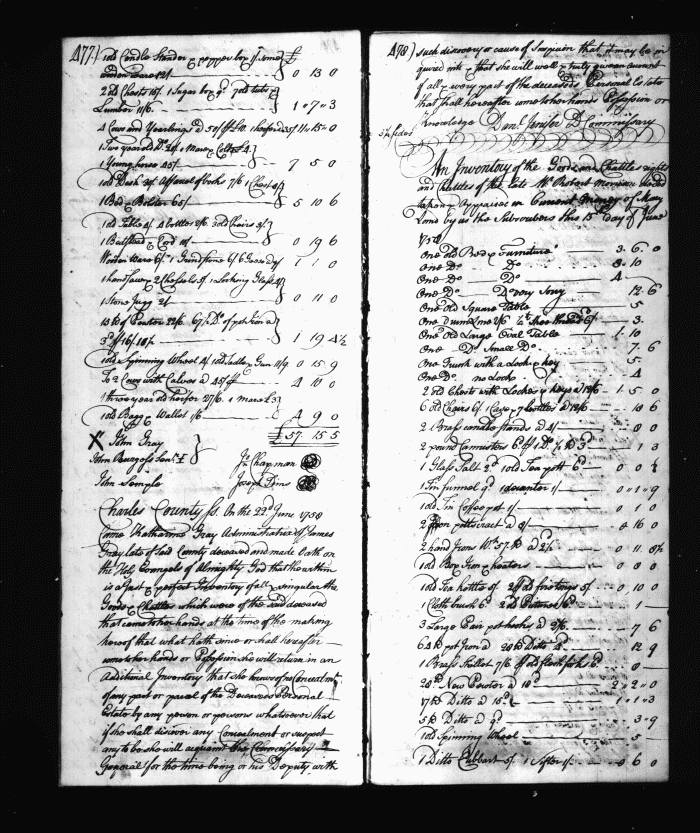 477)
1 old Candle Stander & pepper box 1/ some } £
wooden ware 12/ 0 13 0
2 old Chests 15/. 1 Sugar box 9d 7 old tubs }
Lumber 11/6 1 » 7 » 3
4 Cows and Yearlings @ 50/ £10. 1 heifer 35/ 11 » 15 » 0
1 Two year old Do 20/ 1 Mare & Colt £4 }
1 Young horse 45/ 7 5 0
1 old Desk 30/ A Parcel of books 7/6 1 Chest 8/ }
1 Bed & Bolster 65/ 5 10 6
1 old Table 4/. 4 bottles 2/6 3 old Chairs 3/ }
1 Bedstead & Cord 10/ 0 19 6
Wooden Ware 6/. 1 Grindstone 6/ 6 Geese 9/ } 1 1 0
1 hand saw & 2 Chissels 5/. 1 Looking Glass 4/ }
1 Stone Jugg 2/ 0 11 0
of Pewter 22/6 of pot Iron @ }
3d 16/10½ 1 19 4½
1 old Spinning Wheel 4/ 1 old Gun 11/9 0 15 9
To 2 Cows with Calves @ 45/ 4 10 0
1 three year old heifer 27/6. 1 mare £3 }
1 old Bagg & Wallet 1/6 4 9 0
£57 15 5
John Gray
John Burgess Senr }
John Semple
Jn Chapman
Joseph
Charles County ss. On the 22d June 1750
Came Katharine Gray Administratrix of James
Gray late of said County deceased and made Oath on
the Holy Evangels of Almighty God that the within
is a Just & perfect Inventory of all & singular the
Goods & Chattles which were of the said deceased
that came to her hands at the time of the making
hereof that what hath since or shall hereafter
come to her hands or Possession she will return in an
Additional Inventory that she knows of no Concealment
of any part or parcel of the Deceaseds Personal
Estate by any person or persons whatsoever that
if she shall discover any Concealment or suspect
any to be she will acquaint the Commissary
General for the time being or his Deputy with
478)
such discovery or cause of Suspicion that it may be in
quired into & that she will well & truly give an account
of all & every part of the deceaseds Personal Estate
that shall hereafter come to her hands Possession or
Knowledge Danl Jenifer D Commissary
3½ sides
An Inventory of the Goods and Chattles rights
and Chattles of the late Mr Robert
Appraised in Current Money of Mary
Land by us the Subscribers this 15th Day of June
1750
One old Bed & Furniture 3. 6. 0
One Do Do 8. 10
One Do Do 4.
One Do Do very 12. 6
One old Square Table 5
3.
One old Large Oval Table 1. 10
One Do Small Do 7. 6
One Trunk with a Lock & key 5.
One Do no Lock 4
2 old Chests with Locks & keys @ 12/6 1 5 0
6 old Chairs 6/. 10 6
2 Brass candlesticks @ 4/ 0 8 0
2 pound Canisters 1 3
1 Glass Salt 2d 1 old Tea pott 6d
1 Tin funnel 9d 1 decanter 1/ 0 » 1 » 9
1 old Tin Coffee pot 1/ 0 1 0
2 @ 8/ 0 16 0
2 hand Irons Wt 57 lb @ 2½ 0 11 »
1 old Box Iron & heaters 0 8 0
1 old Tea kettle 5/. 2 old frying pans 5/. 0 10 0
1 Cloth brush 6d 2 old 6d 1
3 Large Pair pothooks @ 2/6. 7 6
pot Iron @ Ditto 4d 12 9
1 Brass Skillet 7/6 flesh fork 6d 8
20 lb New Pewter @ 2 » 2 » 0
17 lb Ditto @ 15d 1 » 1 » 3
5 lb Ditto @ 9d 3 » 9
1 old Spinning Wheel 5
1 Ditto Cubbart 5/. 1 Sifter 1/. 0 6 0